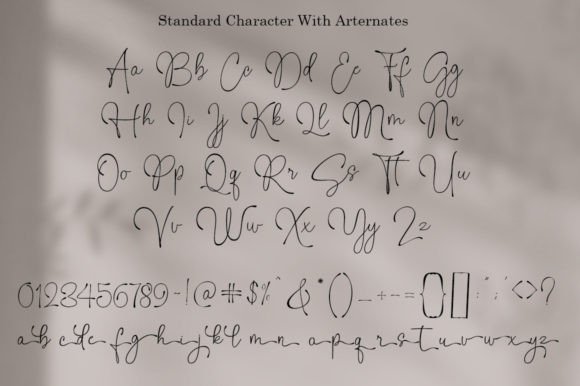 Standard Character With Arternates
Aa Bb Cc Dd Ee Ff Gg
Hh Ii Jj Kk Ll Mm Nn
Oo Pp Qq Rr Ss Tt Uu
Vv Ww Xx Yy Zz
0123456789-!@#$%^&*()_+-={}[]:";'<>?
a b c d e f g h i j k l m n o p q r s t u v w x y z